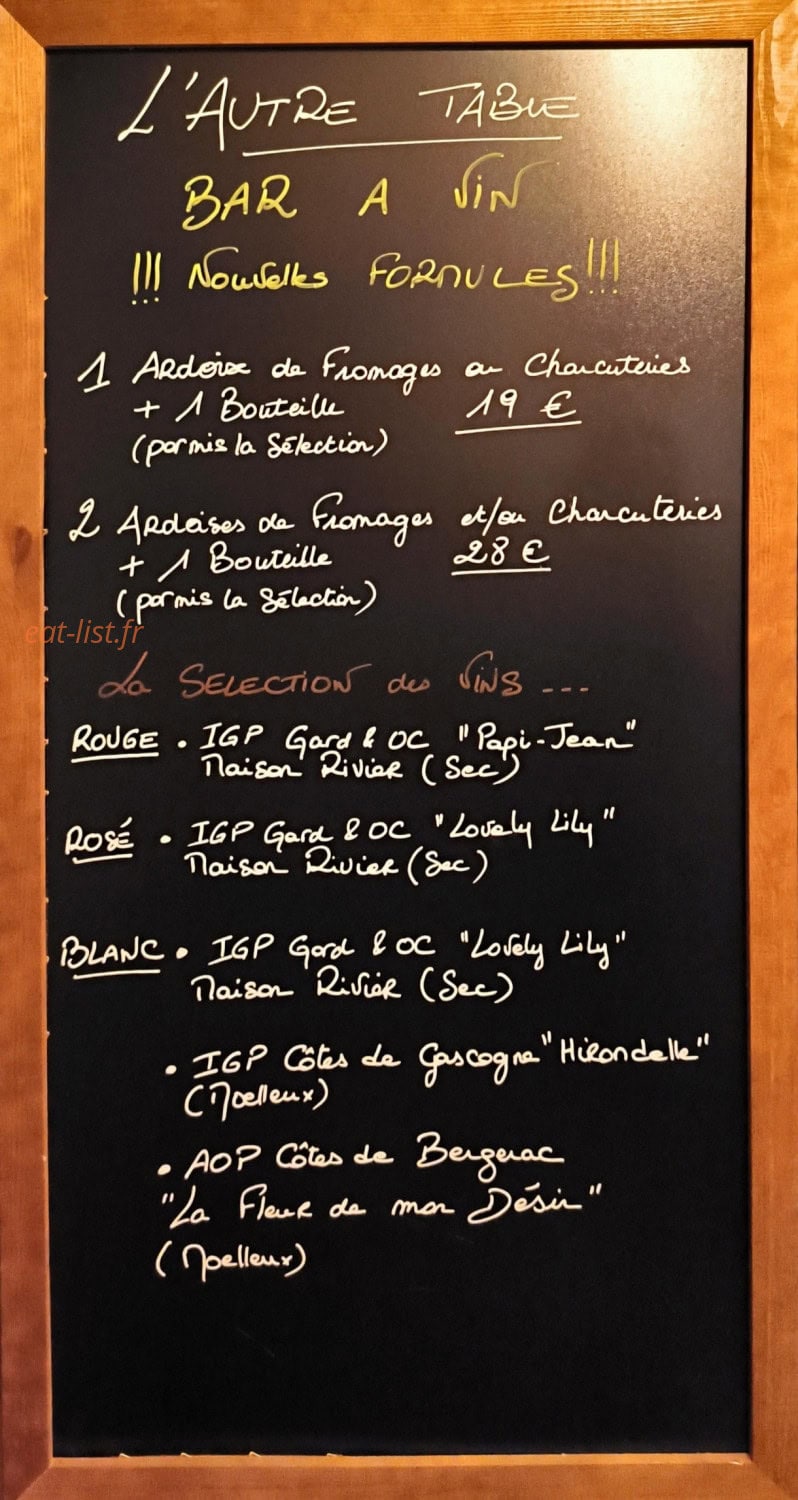 L'AUTRE TABLE
BAR A VIN
!!! Nouvelles FORMULES !!!
1 Ardoise de Fromages ou Charcuteries
+ 1 Bouteille 19 €
(parmis la Sélection)
2 Ardoises de Fromages et/ou Charcuteries
+ 1 Bouteille 28 €
(parmis la Sélection)
eat-list.fr
La SELECTION des VINS ...
ROUGE • IGP Gard & OC "Papi-Jean"
Maison Rivier (Sec)
ROSÉ • IGP Gard & OC "Lovely Lily"
Maison Rivier (Sec)
BLANC • IGP Gard & OC "Lovely Lily"
Maison Rivier (Sec)
• IGP Côtes de Gascogne "Hirondelle"
(Moelleux)
• AOP Côtes de Bergerac
"La Fleur de mon Désir"
(Moelleux)